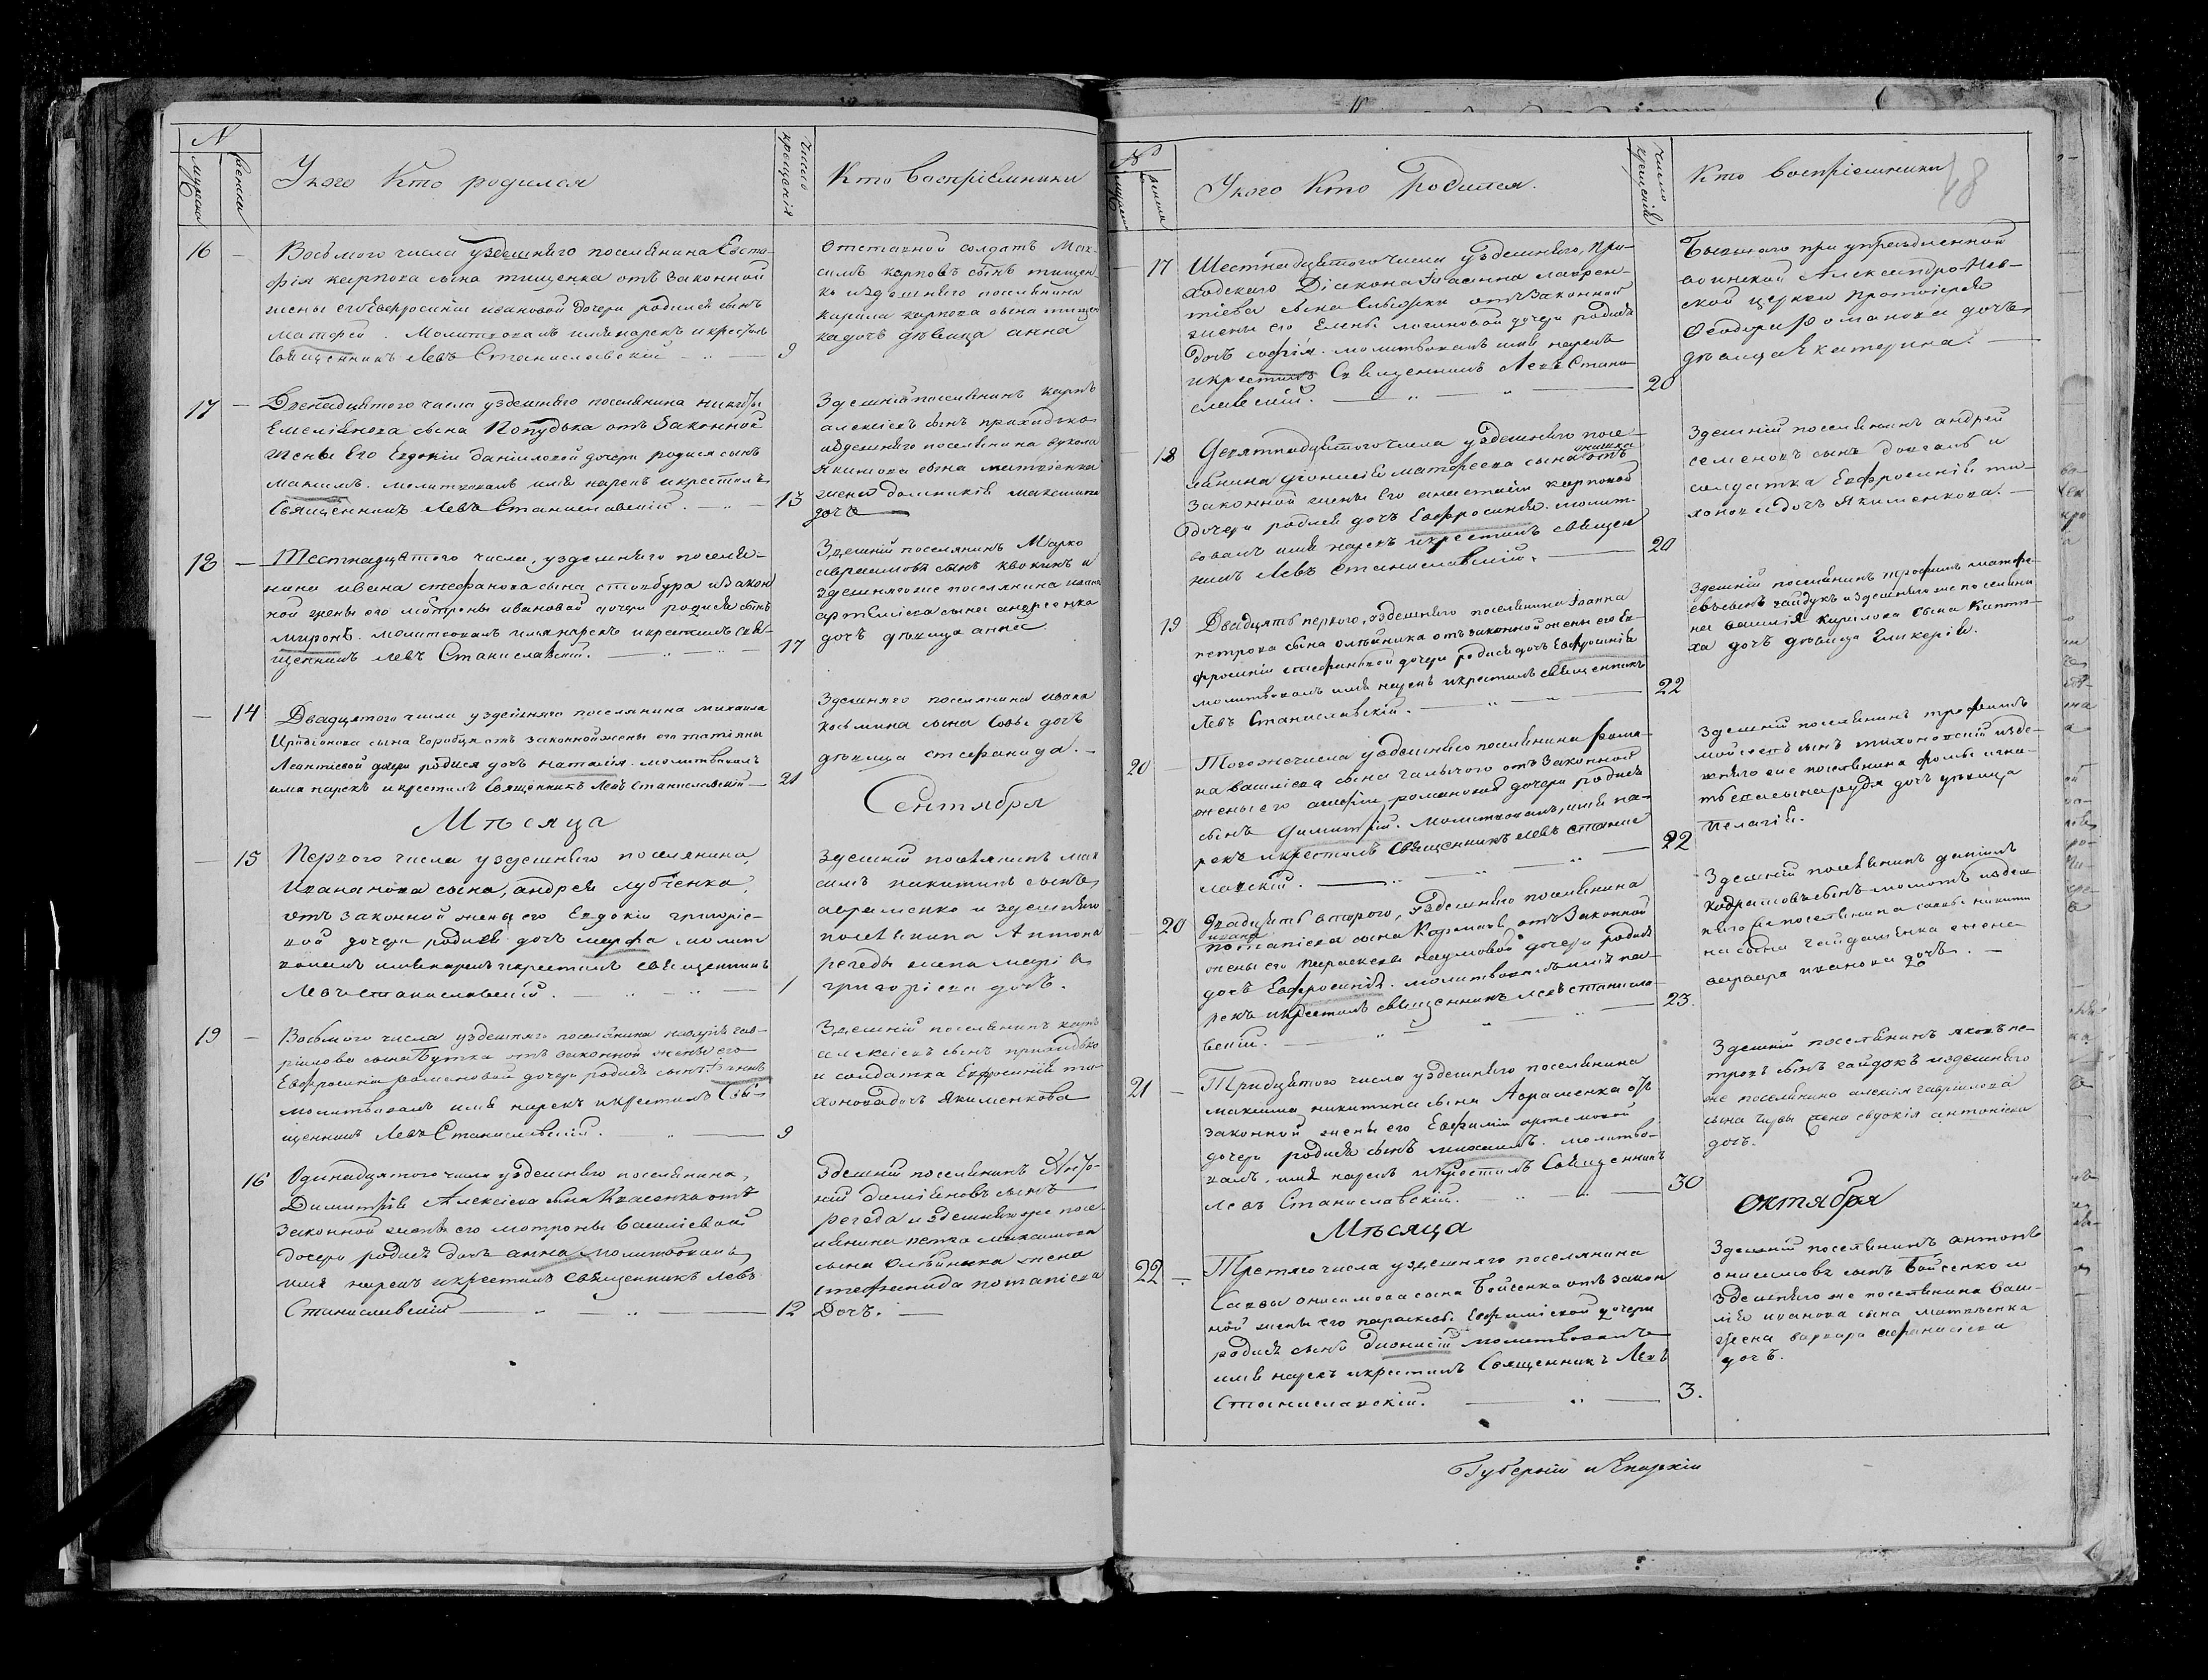 №
Мужска
Женска
У кого Кто родился
Число крещенія
Кто Воспріемники
16 —
Восьмого числа уздешняго поселянина Евста-
фія карпова сына тищенка отъ Законной
жены его Евфросиніи ивановой дочери родился сынъ
Матфей. Молитвовалъ имя нарекъ и крестилъ
Священникъ Левъ Станиславскій — 9
Отставной солдатъ Мак-
симъ карповъ сынъ тищен
ко издешняго поселянина
карпова сына тищен
ка дочь дѣвица анна
17 —
Двенадцятого числа уздешняго поселянина никиты
Емеліянова сына Попудька отъ Законной
жены Его Евдокіи даніиловой дочери родися сынъ
Максимъ. молитвовалъ имя нарекъ и крестилъ
Священникъ Левъ Станиславскій. — 13
Здешній поселянинъ карпъ
алексіевъ сынъ приходько
издешняго поселянина вукола
Якимова сына матвіенка
жена домникія максимова
дочь
18 —
Шестнадцятого числа, уздешняго поселя-
нина ивана стефанова сына стовбура изакон
ной жены его мотроны ивановой дочери родися сынъ
миронъ. молитвовалъ имя нарекъ и крестилъ свя-
щенникъ левъ Станиславскій. — 17
Здешній поселянинъ Марко
авраамовъ сынъ квокинъ и
здешнягоже поселянина ивана
артеміева сына андреенка
дочь дѣвица анна
— 14
Двадцятого числа уздешняго поселянина михаила
Иридіонова сына Горобця отъ законной жены его татіяны
Леонтіевой дочери родися дочь наталія. молитвовалъ
имя нарекъ и крестилъ Священникъ Левъ Станиславскій — 21
Здешняго поселянина ивана
косьмина сына Совы дочь
дѣвица стефанида. —
Мѣсяца Сентября
— 15
Перваго числа уздешняго поселянина,
Иванова сына, андрея лубченка,
отъ законной жены его Евдокіи григоріе-
вой дочери родися дочь марфа молит
вовалъ имя нарекъ и крестилъ священникъ
Левъ станиславскій. — 1
Здешній поселянинъ мак
симъ никитинъ сынъ
авраменко и здешняго
поселянина Антона
регеды жена марія
григоріева дочь.
19 —
Восьмого числа уздешняго поселянина гав-
ріилова сына Бутка отъ законной жены его
Евфросиніи романовой дочери родися сынъ Іоаннъ
молитвовалъ имя нарекъ и крестилъ Свя-
щенникъ Левъ Станиславскій. — 9
Здешній поселянинъ карпъ
алексіевъ сынъ приходько
и солдатка Евфросинія ти-
хонова дочь Якименкова
16
Одинадцятого числа уздешняго поселянина,
Димитрія Алексіева сына Квасенка отъ
Законной жены его мотроны василіевой
дочери родися дочь анна молитвовалъ
имя нарекъ и крестилъ священникъ левъ
Станиславскій — 12
Здешній поселянинъ Анто-
ній даміяновъ сынъ
регеда и здешнягоже посе-
лянина петра максимова
сына Олѣйника жена
стефанида потапіева
Дочь. —
№
мужеска
женска
У кого Кто Родился.
Число крещенія
Кто Воспріемники
48
— 17
Шестнадцятого числа уздешняго, При-
ходского Діакона Іоанна лаврен-
тіева сына отъ Законной
жены его Елены логиновой дочери родися
дочь софія. молитвовалъ имя нарекъ
и крестилъ Священникъ Левъ Стани-
славскій. — 20
Бывшаго при упраздненной
воинской Александро-Нев-
ской церкви протоіерея
Ѳеодора романова дочь
дѣвица Екатерина. —
— 18
Девятнадцятого числа уздешняго посе-
лянина діонисія матфеева сына отъ
Законной жены Его анастасіи карповой
дочери родися дочь Евфросинія. молит-
вовалъ имя нарекъ и крестилъ священ
никъ Левъ Станиславскій. — 20
Здешній поселянинъ андрей
семеновъ сынъ довгаль и
солдатка Евфросинія ти-
хонова дочь Якименкова. —
19
Двадцять перваго, уздешняго поселянина Іоанна
петрова сына олѣйника отъ законной жены его Ев-
фросиніи стефановой дочери родися дочь Евфросинія
молитвовалъ имя нарекъ и крестилъ священникъ
Левъ Станиславскій. — 22
Здешній поселянинъ трофимъ матфе-
евъ сынъ гайдукъ и здешнягоже поселяни
на василія кирилова сына
ха дочь дѣвица Гликерія.
20 —
Того же числа уздешняго поселянина рома-
на василіева сына галычого отъ Законной
жены его агафіи романовой дочери родися
сынъ димитрій. Молитвовалъ, имя на-
рекъ и крестилъ Священникъ левъ станис
лавскій. — 22
Здешній поселянинъ трофимъ
моисеевъ сынъ тихоновскій изде-
шняго же поселянина фомы игна-
тьева сына рудя дочь дѣвица
Пелагія.
— 20
Двадцять второго, уздешняго поселянина
ивана
потапіева сына Карпова, отъ Законной
жены его параскевы наумовой дочери родися
дочь Евфросинія. молитвовалъ имя на-
рекъ и крестилъ священникъ левъ станисла-
вскій. — 23.
Здешній поселянинъ даніилъ
кодратовъ сынъ момотъ издеш
няго же поселянина саввы никити
на сына гайдашенка жена
варвара иванова дочь. —
21 —
Тридцятого числа уздешняго поселянина
максима никитина сына Авраменка отъ
законной жены его Евфиміи артемовой
дочери родися сынъ михаилъ. молитво-
валъ, имя нарекъ и крестилъ Священникъ
Левъ Станиславскій. — 30
Здешній поселянинъ яковъ пе-
тровъ сынъ гайдокъ издешняго
же поселянина алексія гавріилова
сына жена евдокія антоніева
дочь.
Мѣсяца октября
22 —
Третяго числа уздешняго поселянина
Саввы онисимова сына Бойсенка отъ закон
ной жены его параскевы Евфиміевой дочери
родися сынъ дионисій молитвовалъ
имя нарекъ и крестилъ Священникъ Левъ
Станиславскій. — 3.
Здешній поселянинъ антонъ
онисимовъ сынъ Бойсенко и
Здешнягоже поселянина васи-
лія иванова сына матвѣенка
жена варвара афанасіева
дочь.
Губерніи и Епархіи